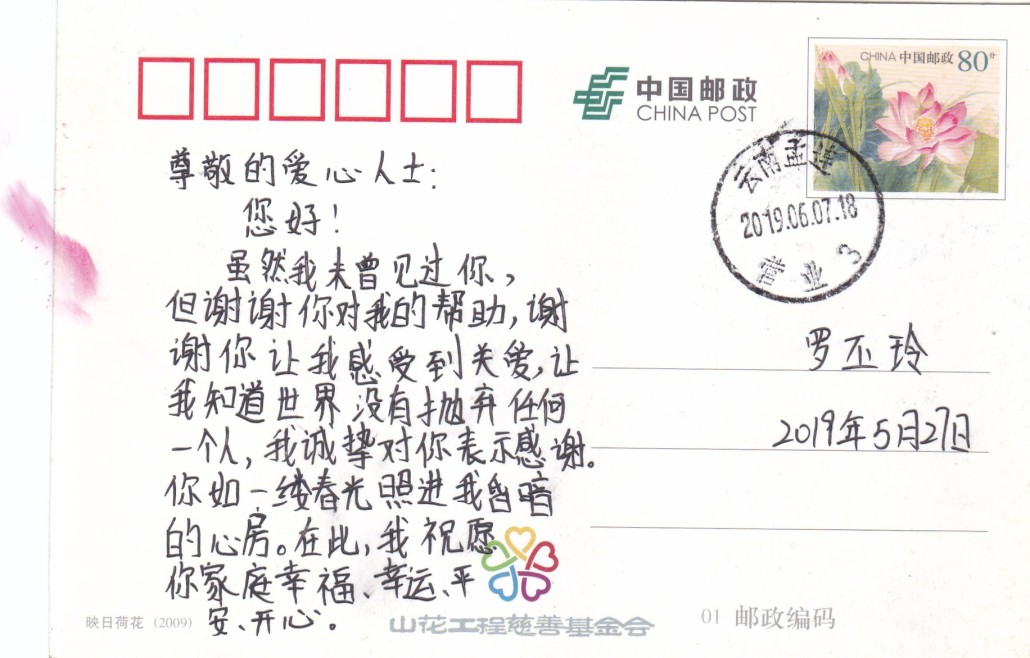 中国邮政
CHINA POST
CHINA 中国邮政 80分
云南孟连
2019.06.07.18
营业 3
尊敬的爱心人士：
您好！
虽然我未曾见过你，
但谢谢你对我的帮助，谢
谢你让我感受到关爱，让
我知道世界没有抛弃任何
一个人，我诚挚对你表示感谢。
你如一缕春光照进我昏暗
的心房。在此，我祝愿
你家庭幸福、幸运、平
安、开心。
罗丕玲
2019年5月27日
映日荷花 (2009)
山花工程慈善基金会
01 邮政编码